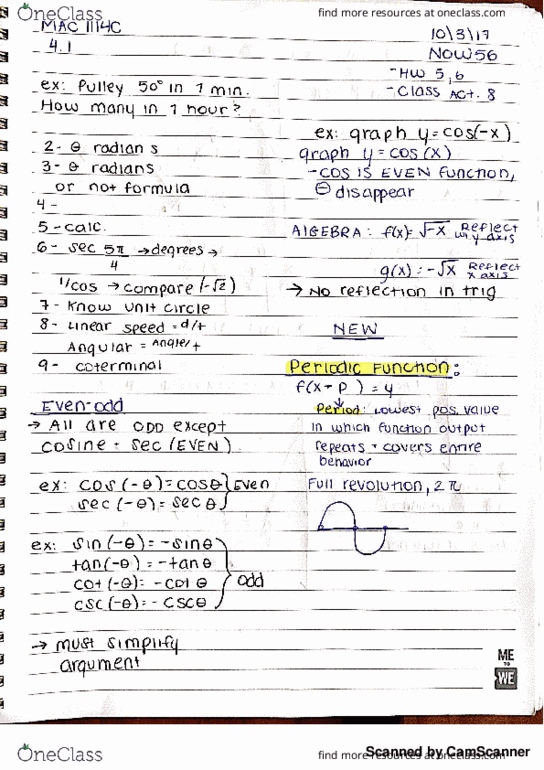 OneClass
find more resources at oneclass.com
MAC 1114C
4.1
10/3/17
NOW 56
-HW 5,6
-Class Act. 8
ex: Pulley 50° in 1 min.
How many in 1 hour?
2- θ radians
3- θ radians
or not formula
4-
5-calc.
6- sec 5π/4 → degrees →
1/cos → compare (-√2)
7- Know unit circle
8- Linear speed = d/t
Angular = Angle/t
9- coterminal
Even-odd
→ All are ODD except
cosine + sec (EVEN)
ex: cos(-θ)=cosθ } Even
sec(-θ)=secθ
ex: sin(-θ)=-sinθ
tan(-θ)=-tanθ
cot(-θ)=-cotθ } odd
csc(-θ)=-cscθ
→ must simplify
argument
ex: graph y=cos(-x)
graph y=cos(x)
-COS IS EVEN function,
⊖ disappear
AlGEBRA: f(x)=√-x Reflect w/ y axis
g(x)=-√x Reflect x axis
→ No reflection in trig
NEW
Periodic Function:
f(x+p)=y
Period: lowest pos. value
in which function output
repeats + covers entire
behavior
Full revolution, 2π
ME
TO
WE
OneClass
find more resources at oneclass.com
Scanned by CamScanner